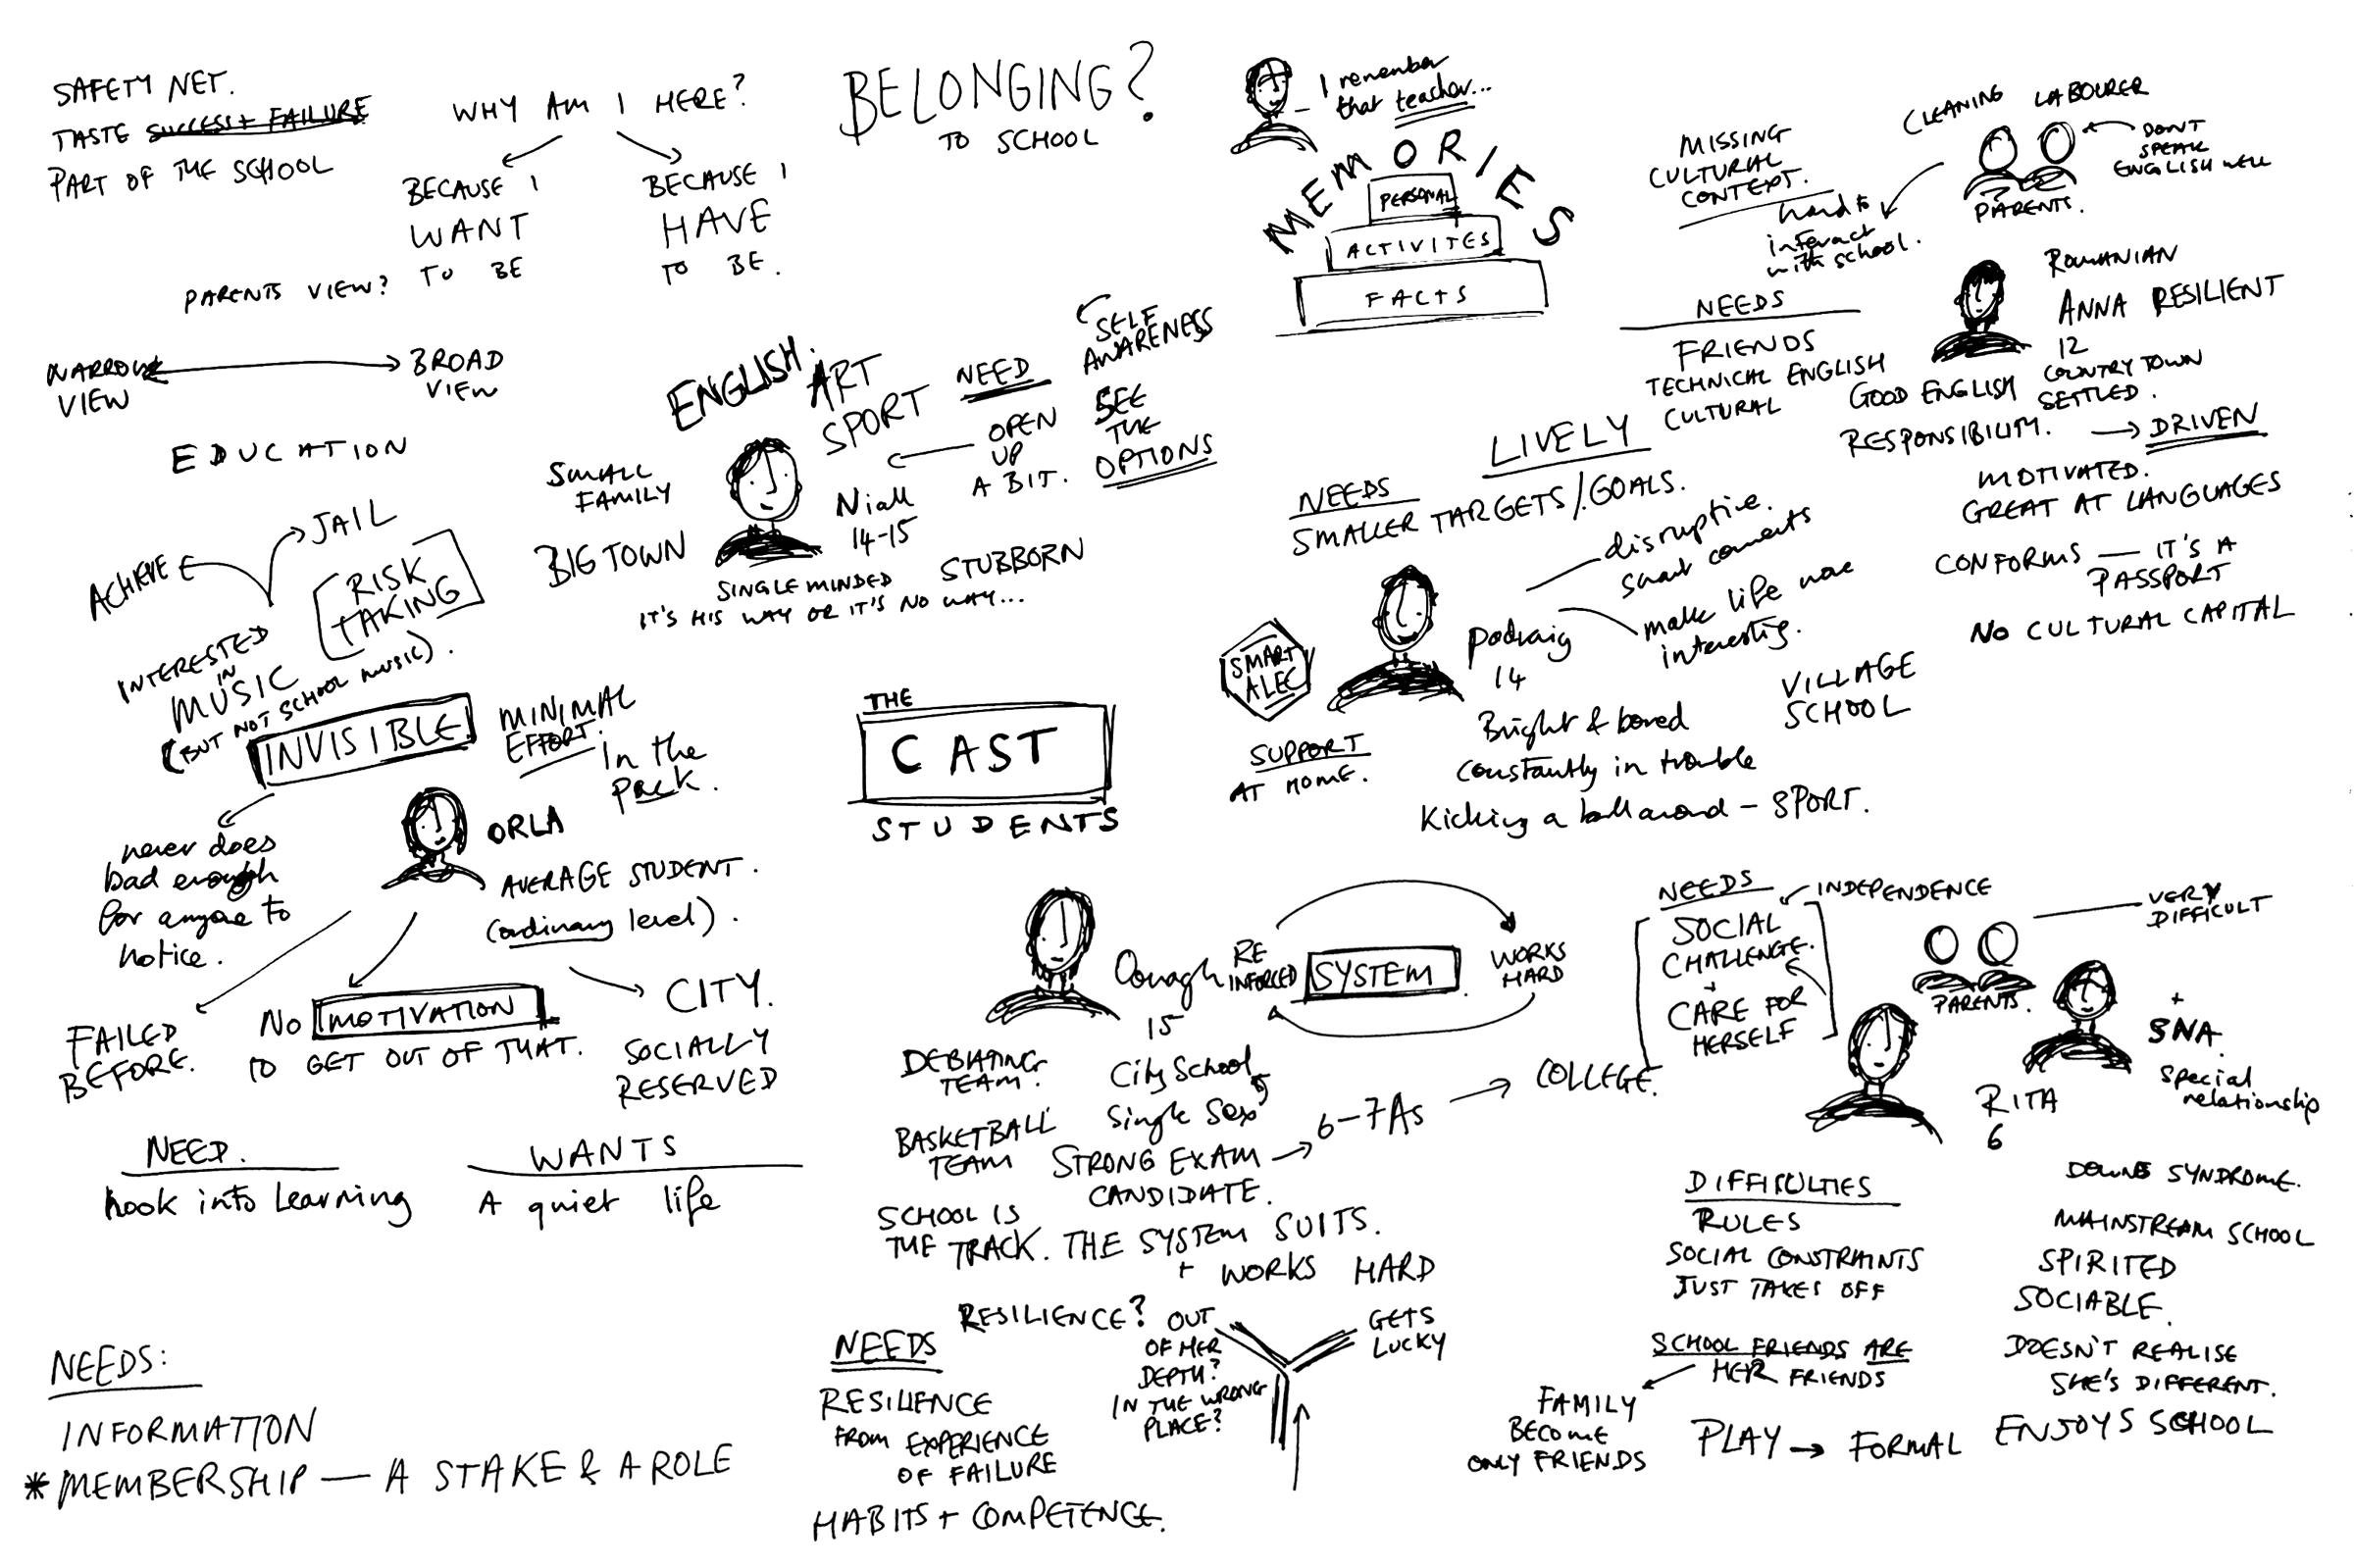 SAFETY NET.
TASTE SUCCESS + FAILURE
PART OF THE SCHOOL
WHY AM I HERE?
BECAUSE I
WANT
TO BE
BECAUSE I
HAVE
TO BE.
PARENTS VIEW?
NARROW
VIEW
BROAD
VIEW
EDUCATION
BELONGING?
TO SCHOOL
I remember
that teacher...
MEMORIES
PERSONAL
ACTIVITES
FACTS
MISSING
CULTURAL
CONTEXT.
CLEANING
LABOURER
DON'T
SPEAK
ENGLISH WELL
PARENTS.
hard to
interact
with school.
NEEDS
FRIENDS
TECHNICAL ENGLISH
CULTURAL
ROMANIAN
ANNA RESILIENT
12
COUNTRY TOWN
GOOD ENGLISH SETTLED.
RESPONSIBILITY. → DRIVEN
MOTIVATED.
GREAT AT LANGUAGES
CONFORMS — IT'S A
PASSPORT
NO CULTURAL CAPITAL
ENGLISH.
ART
SPORT
NEED
OPEN
UP
A BIT.
SELF
AWARENESS
SEE
THE
OPTIONS
SMALL
FAMILY
BIG TOWN
Niall
14-15
SINGLE MINDED
STUBBORN
IT'S HIS WAY OR IT'S NO WAY...
LIVELY
NEEDS
SMALLER TARGETS/GOALS.
disruptive.
smart coments
make life more
interesting.
SMART
ALEC
Podraig
14
VILLAGE
SCHOOL
SUPPORT
AT HOME.
Bright & bored
Constantly in trouble
Kicking a ball around - SPORT.
ACHIEVE
JAIL
RISK
TAKING
INTERESTED
IN
MUSIC
(BUT NOT SCHOOL MUSIC).
INVISIBLE
MINIMAL
EFFORT.
In the
pack.
never does
bad enough
for anyone to
notice.
ORLA
AVERAGE STUDENT.
(ordinary level).
FAILED
BEFORE.
NO MOTIVATION
TO GET OUT OF THAT.
CITY.
SOCIALLY
RESERVED
NEED.
hook into learning
WANTS
A quiet life
THE
CAST
STUDENTS
Oonagh
15
RE
INFORCED
SYSTEM
WORKS
HARD
DEBATING
TEAM.
City School
Single Sex
BASKETBALL
TEAM
STRONG EXAM → 6-7As → COLLEGE.
CANDIDATE.
SCHOOL IS
THE TRACK. THE SYSTEM SUITS.
+ WORKS HARD
RESILIENCE?
OUT
OF HER
DEPTH?
IN THE WRONG
PLACE?
GETS
LUCKY
NEEDS
RESILIENCE
FROM EXPERIENCE
OF FAILURE
HABITS + COMPETENCE.
NEEDS
INDEPENDENCE
SOCIAL
CHALLENGE.
+
CARE FOR
HERSELF
PARENTS.
VERY
DIFFICULT
+
SNA.
special
relationship
RITA
6
DIFFICULTIES
RULES
SOCIAL CONSTRAINTS
JUST TAKES OFF
SCHOOL FRIENDS ARE
HER FRIENDS
FAMILY
BECOME
ONLY FRIENDS
PLAY → FORMAL
DOWNS SYNDROME.
MAINSTREAM SCHOOL
SPIRITED
SOCIABLE.
DOESN'T REALISE
SHE'S DIFFERENT.
ENJOYS SCHOOL
NEEDS:
INFORMATION
* MEMBERSHIP — A STAKE & A ROLE